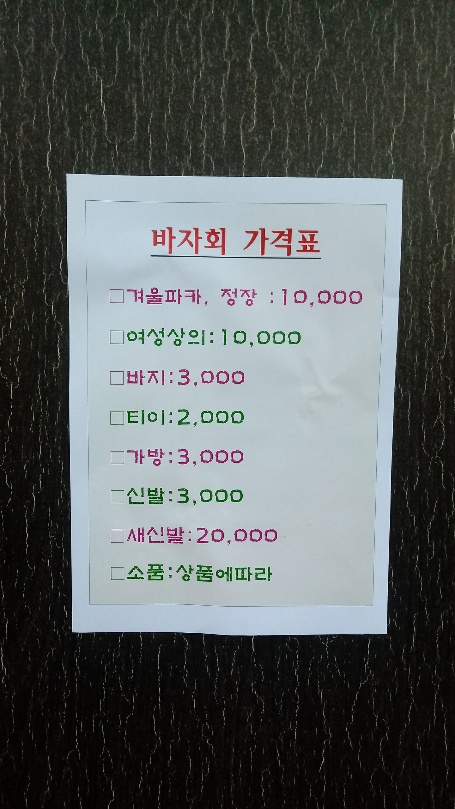 바자회 가격표
□겨울파카, 정장 :10,000
□여성상의:10,000
□바지:3,000
□티이:2,000
□가방:3,000
□신발:3,000
□새신발:20,000
□소품:상품에따라